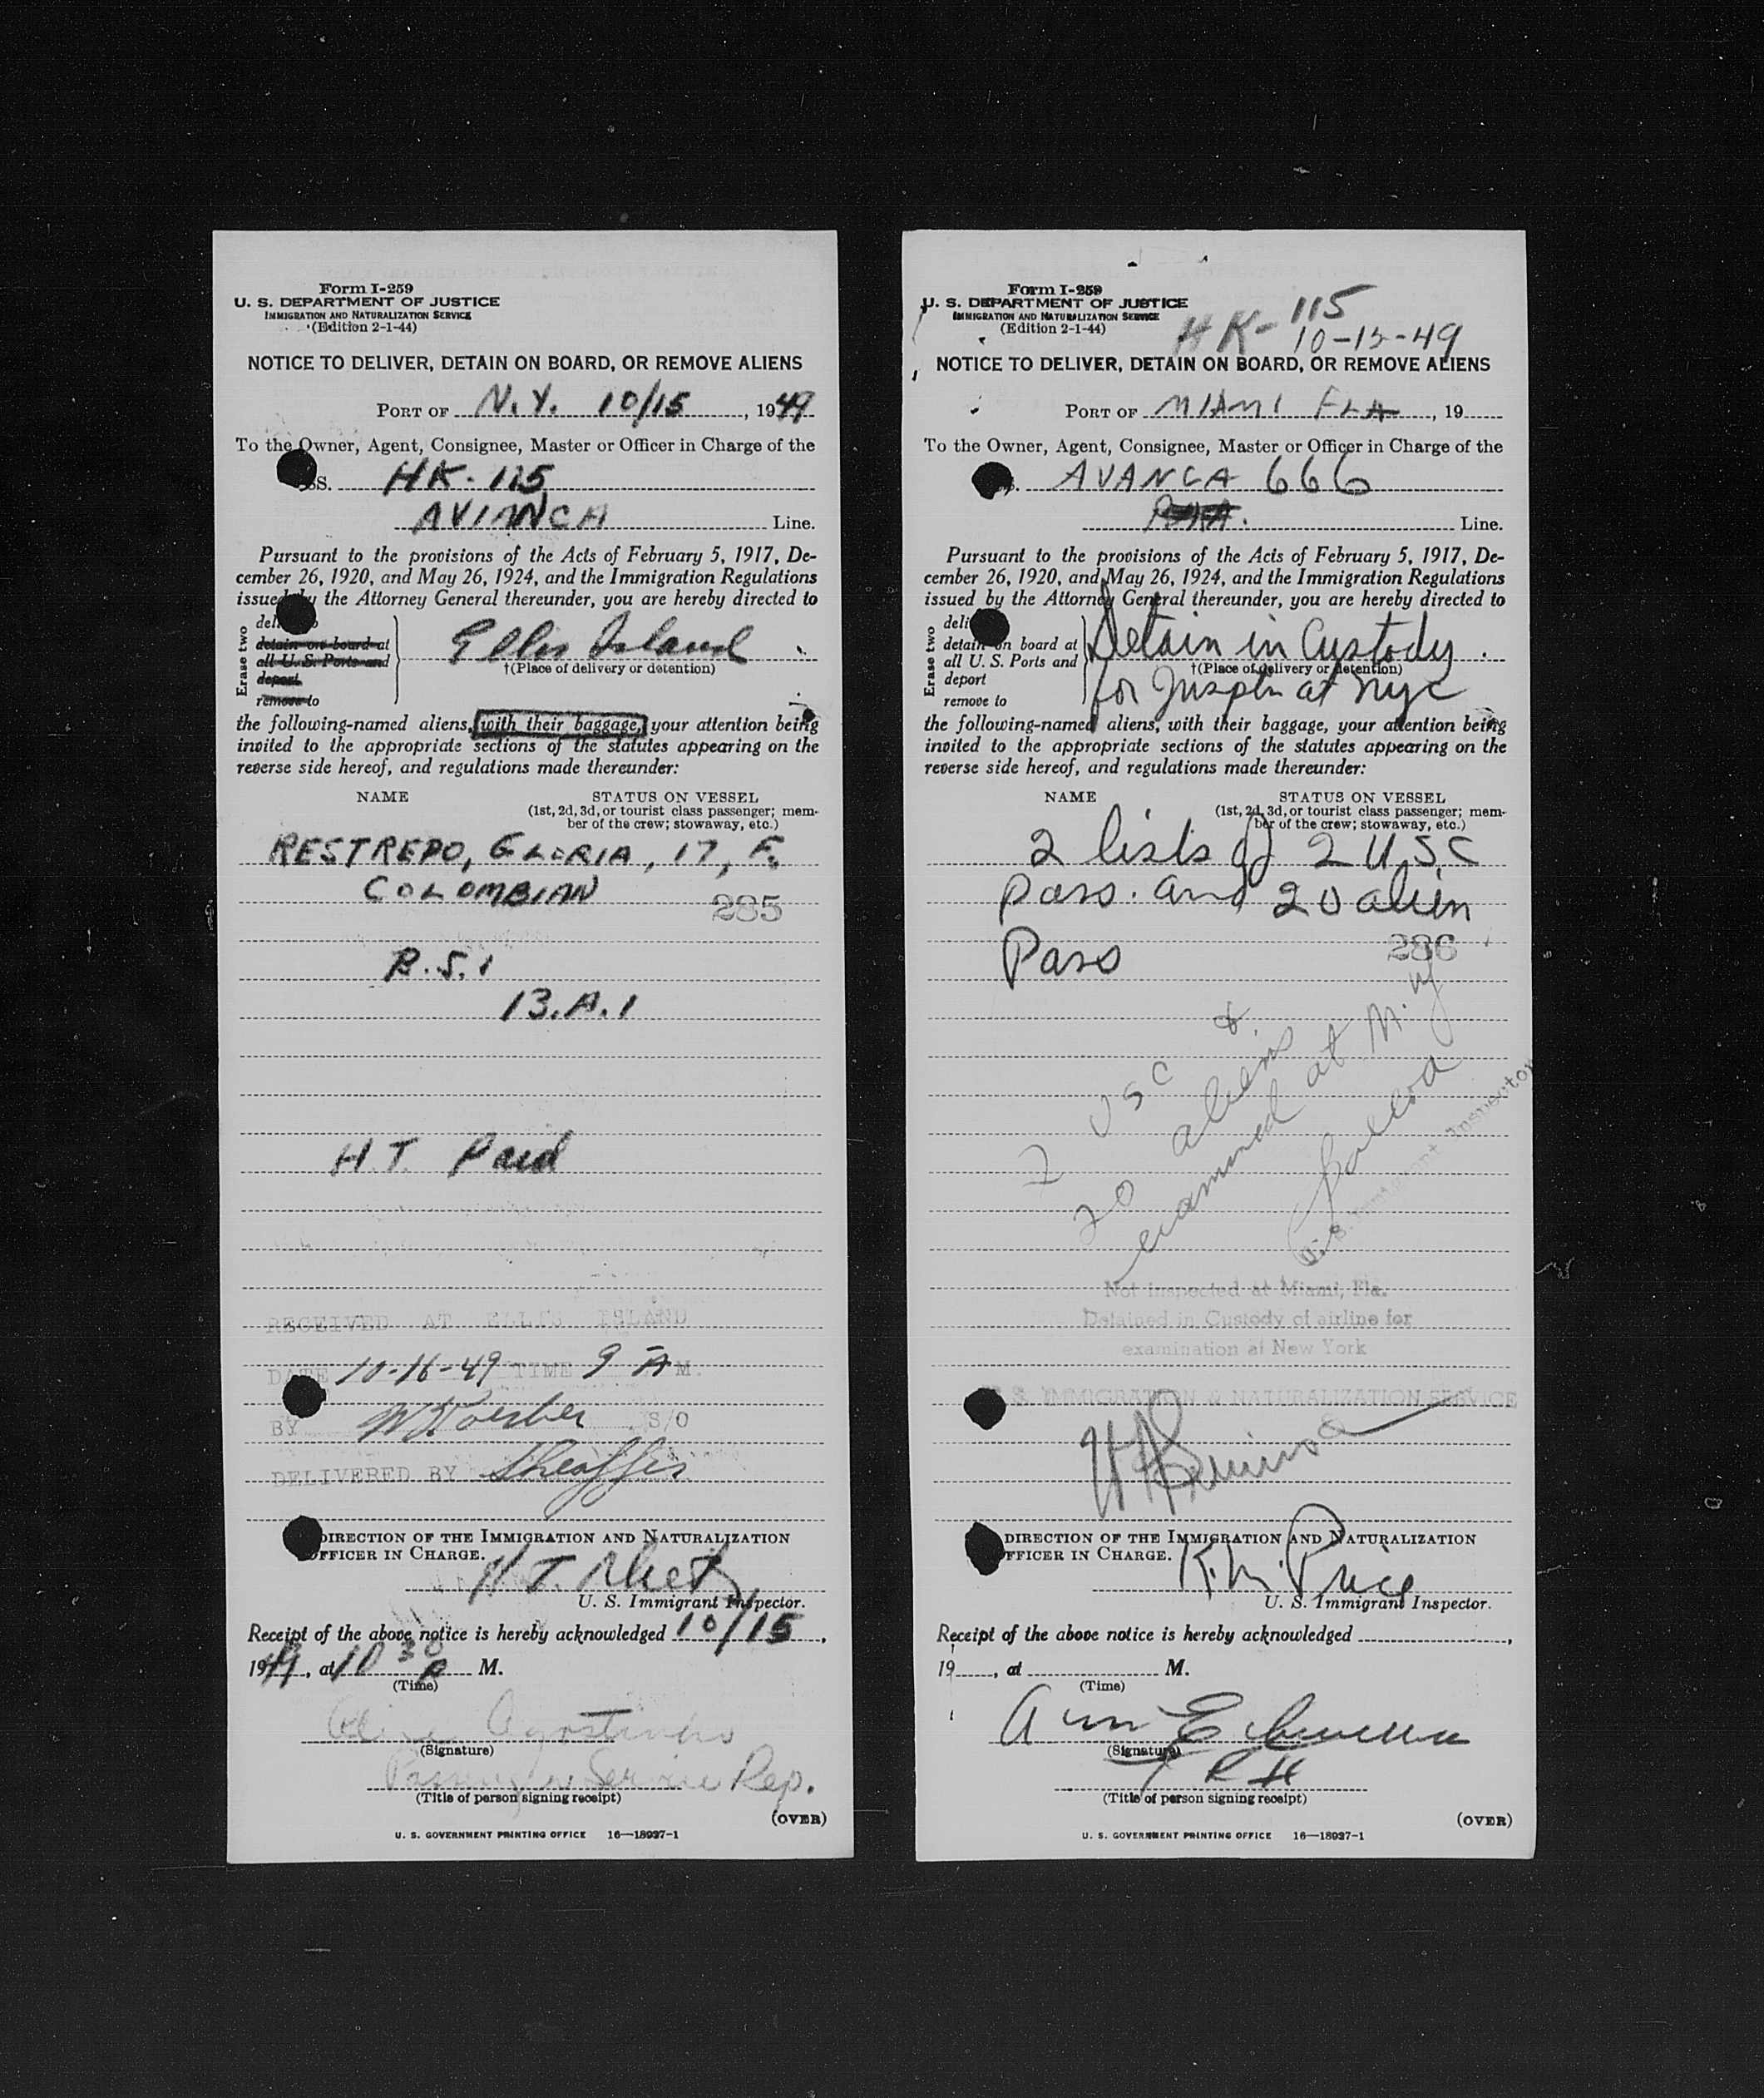 Form I-259
U. S. DEPARTMENT OF JUSTICE
IMMIGRATION AND NATURALIZATION SERVICE
(Edition 2-1-44)
NOTICE TO DELIVER, DETAIN ON BOARD, OR REMOVE ALIENS
PORT OF N.Y. 10/15, 1949
To the Owner, Agent, Consignee, Master or Officer in Charge of the
SS. HK-115
AVIANCA Line.
Pursuant to the provisions of the Acts of February 5, 1917, De-
cember 26, 1920, and May 26, 1924, and the Immigration Regulations
issued by the Attorney General thereunder, you are hereby directed to
Erase two
detain on board at
all U. S. Ports and
deport
remove to
Ellis Island
†(Place of delivery or detention)
the following-named aliens, with their baggage, your attention being
invited to the appropriate sections of the statutes appearing on the
reverse side hereof, and regulations made thereunder:
NAME STATUS ON VESSEL
(1st, 2d, 3d, or tourist class passenger; mem-
ber of the crew; stowaway, etc.)
RESTREPO, GLORIA, 17, F.
COLOMBIAN 285
B.S.I
13.A.1
H.T. Paid
RECEIVED AT ELLIS ISLAND
DATE 10-16-49 TIME 9 A M.
BY S/O
DELIVERED BY
DIRECTION OF THE IMMIGRATION AND NATURALIZATION
OFFICER IN CHARGE.
H.T.
U. S. Immigrant Inspector.
Receipt of the above notice is hereby acknowledged 10/15,
1949, at 10 30 P M.
(Time)
Agostinho
(Signature)
Passenger Service Rep.
(Title of person signing receipt)
(OVER)
U. S. GOVERNMENT PRINTING OFFICE 16—18937-1
Form I-259
U. S. DEPARTMENT OF JUSTICE
IMMIGRATION AND NATURALIZATION SERVICE
(Edition 2-1-44)
HK-115
10-15-49
NOTICE TO DELIVER, DETAIN ON BOARD, OR REMOVE ALIENS
PORT OF MIAMI FLA, 19
To the Owner, Agent, Consignee, Master or Officer in Charge of the
AVANCA 666
Line.
Pursuant to the provisions of the Acts of February 5, 1917, De-
cember 26, 1920, and May 26, 1924, and the Immigration Regulations
issued by the Attorney General thereunder, you are hereby directed to
Erase two
detain on board at
all U. S. Ports and
deport
remove to
Detain in Custody
†(Place of delivery or detention)
for Inspln at NYC
the following-named aliens, with their baggage, your attention being
invited to the appropriate sections of the statutes appearing on the
reverse side hereof, and regulations made thereunder:
NAME STATUS ON VESSEL
(1st, 2d, 3d, or tourist class passenger; mem-
ber of the crew; stowaway, etc.)
2 lists of 2 U.S.C
Pass. and 20 alien
Pass 286
2 USC &
20 aliens
examined at N.Y
U.S. Immigrant Inspector
Not Inspected at Miami, Fla.
Detained in Custody of airline for
examination at New York
U. S. IMMIGRATION & NATURALIZATION SERVICE
DIRECTION OF THE IMMIGRATION AND NATURALIZATION
OFFICER IN CHARGE.
K.M. Price
U. S. Immigrant Inspector.
Receipt of the above notice is hereby acknowledged ,
19 , at M.
(Time)
(Signature)
(Title of person signing receipt)
(OVER)
U. S. GOVERNMENT PRINTING OFFICE 16—18937-1